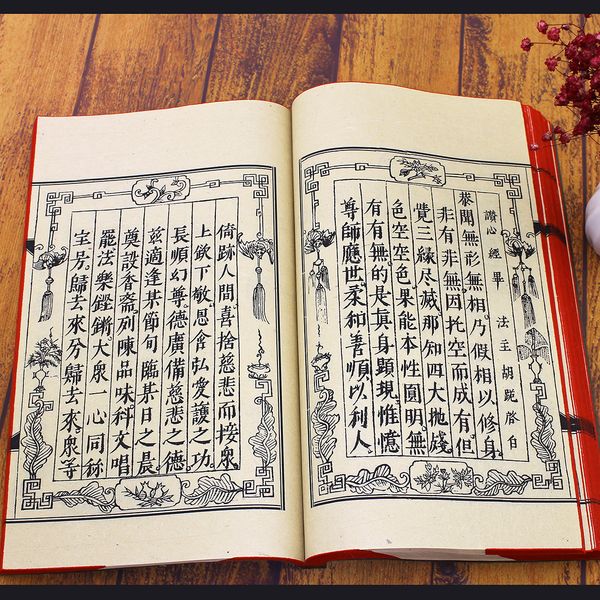 讚心經畢　法主胡跪啓白
恭聞無形無相乃假相以修身
非有非無因托空而成有但
覺三緣尽滅那知四大拋殘
色空空色果能本性圓明無
有有無的是真身顕現惟憶
尊師應世柔和善順以利人
倚跡人間喜捨慈悲而接衆
上欽下敬恩含弘愛護之功
長順幻尊德廣備慈悲之德
茲適逢某節旬臨某日之晨
奠設香斋列陳品味科文唱
罷法樂鏗鏘大衆一心同稱
宝号歸去來兮歸去來衆等